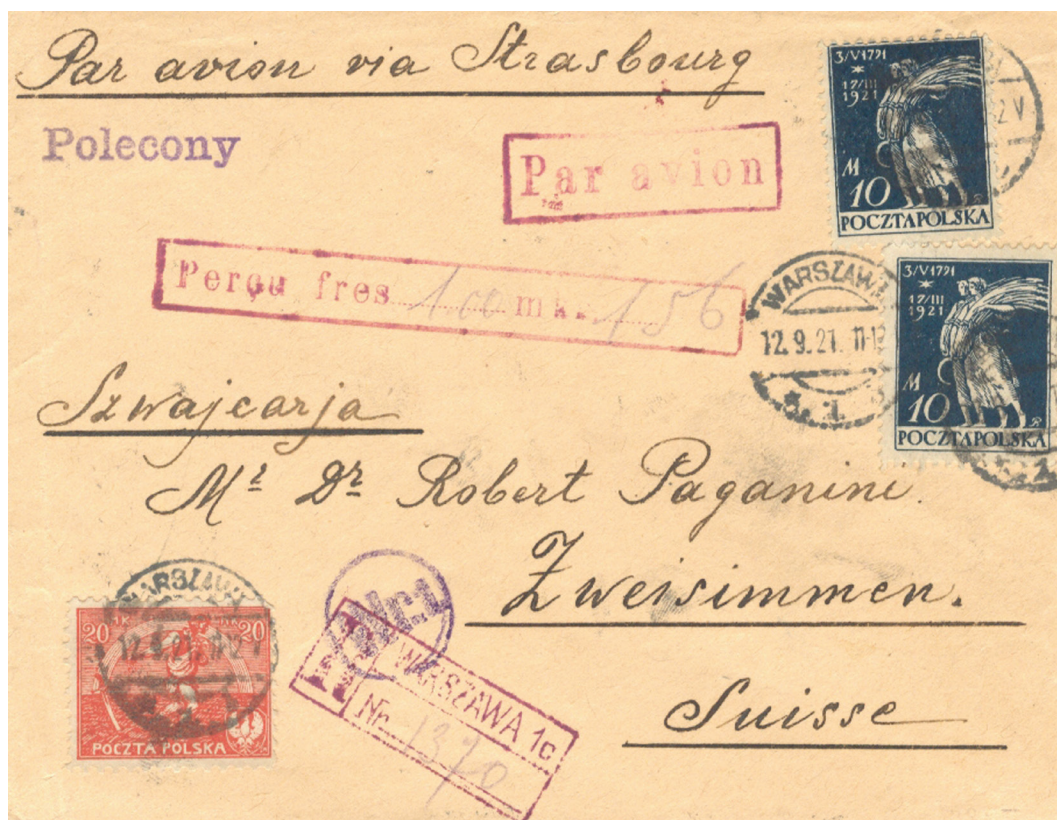 Par avion via Strasbourg
Polecony
Par avion
3/V1791
17/III
1921
M
10
POCZTA POLSKA
Perçu fres 100 mk. 156
WARSZAWA
12.9.21. 11-12
3/V1791
17/III
1921
M
10
POCZTA POLSKA
Szwajcarja
Mr Dr Robert Paganini.
Zweisimmen.
Suisse
WARSZAWA
12.9.21. 11-12 V
20 MK 20
POCZTA POLSKA
Nr. 1
R WARSZAWA 1c
Nr. 1370